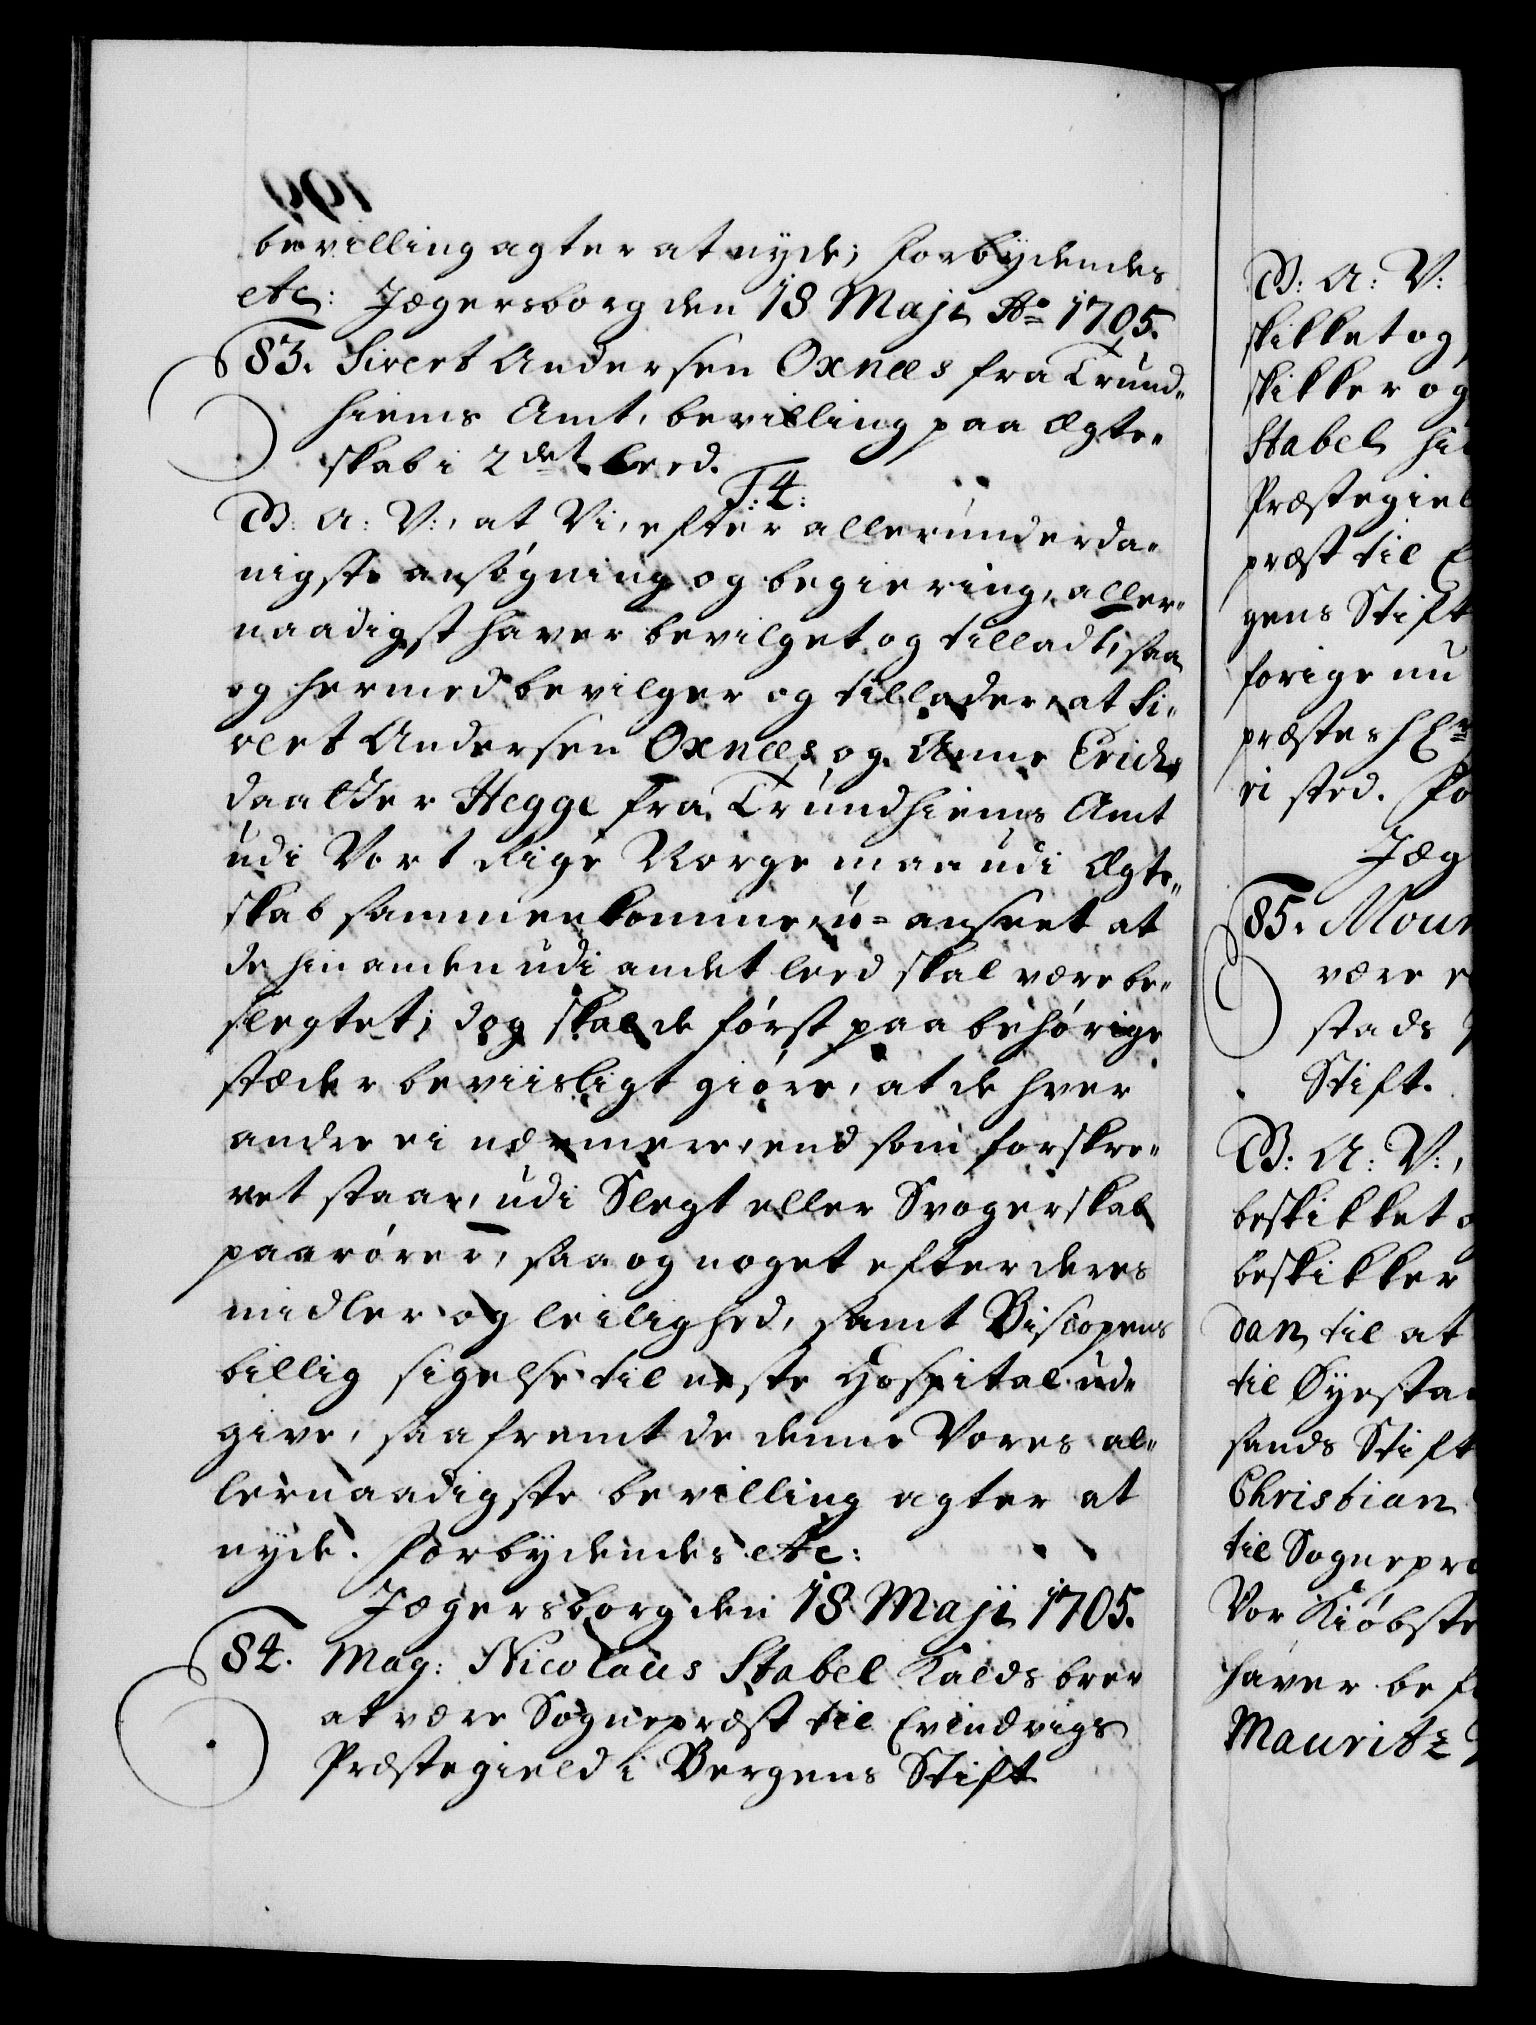 bevilling agter at nyde; forbydendes
etc: Jægersborg den 18 Maji Ao 1705.
83. Sivert Andersen Oxnæs fra Trund-
hiems Amt, bevilling paa Ægte-
skab i 2det Leed.
T: 4:
G: A: V:, at Vi, efter allerunderda-
nigste ansøgning og begiering, aller-
naadigst haver bevilget og tilladt, saa
og hermed bevilger og tillader, at Si-
vert Andersen Oxnæs og Anne Erichs
daatter Hegge fra Trundhiems Amt
udi Vort Rige Norge maa udi Ægte-
skab sammenkomme, u-anseet at
de hinanden udi andet leed skal være be-
slegtet; dog skal de først paa behørige
stæder beviisligt giøre, at de hver
andre ei nærmere, end som forskre-
vet staar, udi Slegt eller Svogerskab
paarører, saa og noget efter deres
midler og leilighed, samt Biscopens
billig sigelse til neste Hospital ud-
give, saafremt de denne Vores al-
lernaadigste bevilling agter at
nyde. Forbydendes etc:
Jægersborg den 18 Maji 1705.
84. Mag: Nicolaus Stabel Kaldsbrev
at være Sognepræst til Evindvigs
Præstegield i Bergens Stift.
G: A: V:
skikket og
skikker og
Stabel
Præstegiel
præst til
gens Stift
forige nu
præstes
ei sted. Fo
Jæg
85. Mour
være
stads
Stift.
G: A: V:,
beskikket
beskikker
dan til at
til Øyesta
sands Stift
Christian
til Sognepræ
Vor Kiøbste
haver be
Mauritz